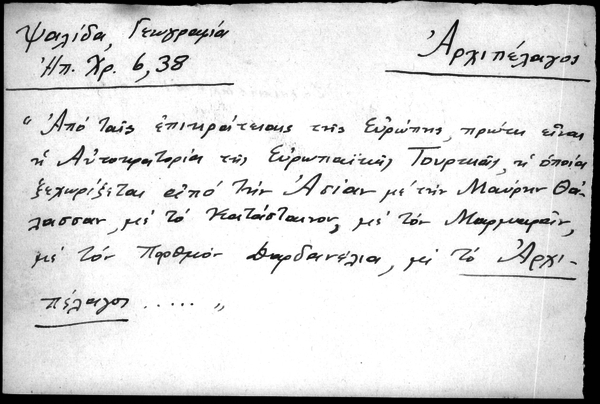 Ψαλίδα, Γεωγραφία
Ἠπ. Χρ. 6, 38
Ἀρχιπέλαγος
" Ἀπό ταῖς ἐπικράτειαις τῆς Εὐρώπης, πρώτη εἶναι
ἡ Αὐτοκρατορία τῆς Εὐρωπαϊκῆς Τουρκίας, ἡ ὁποία
ξεχωρίζεται ἀπό τήν Ἀσίαν μέ τήν Μαύρην Θά-
λασσαν, μέ τό Κατάστενον, μέ τόν Μαρμαρᾶν,
μέ τόν Πορθμόν Δαρδανέλια, μέ τό Ἀρχι-
πέλαγος ..... "